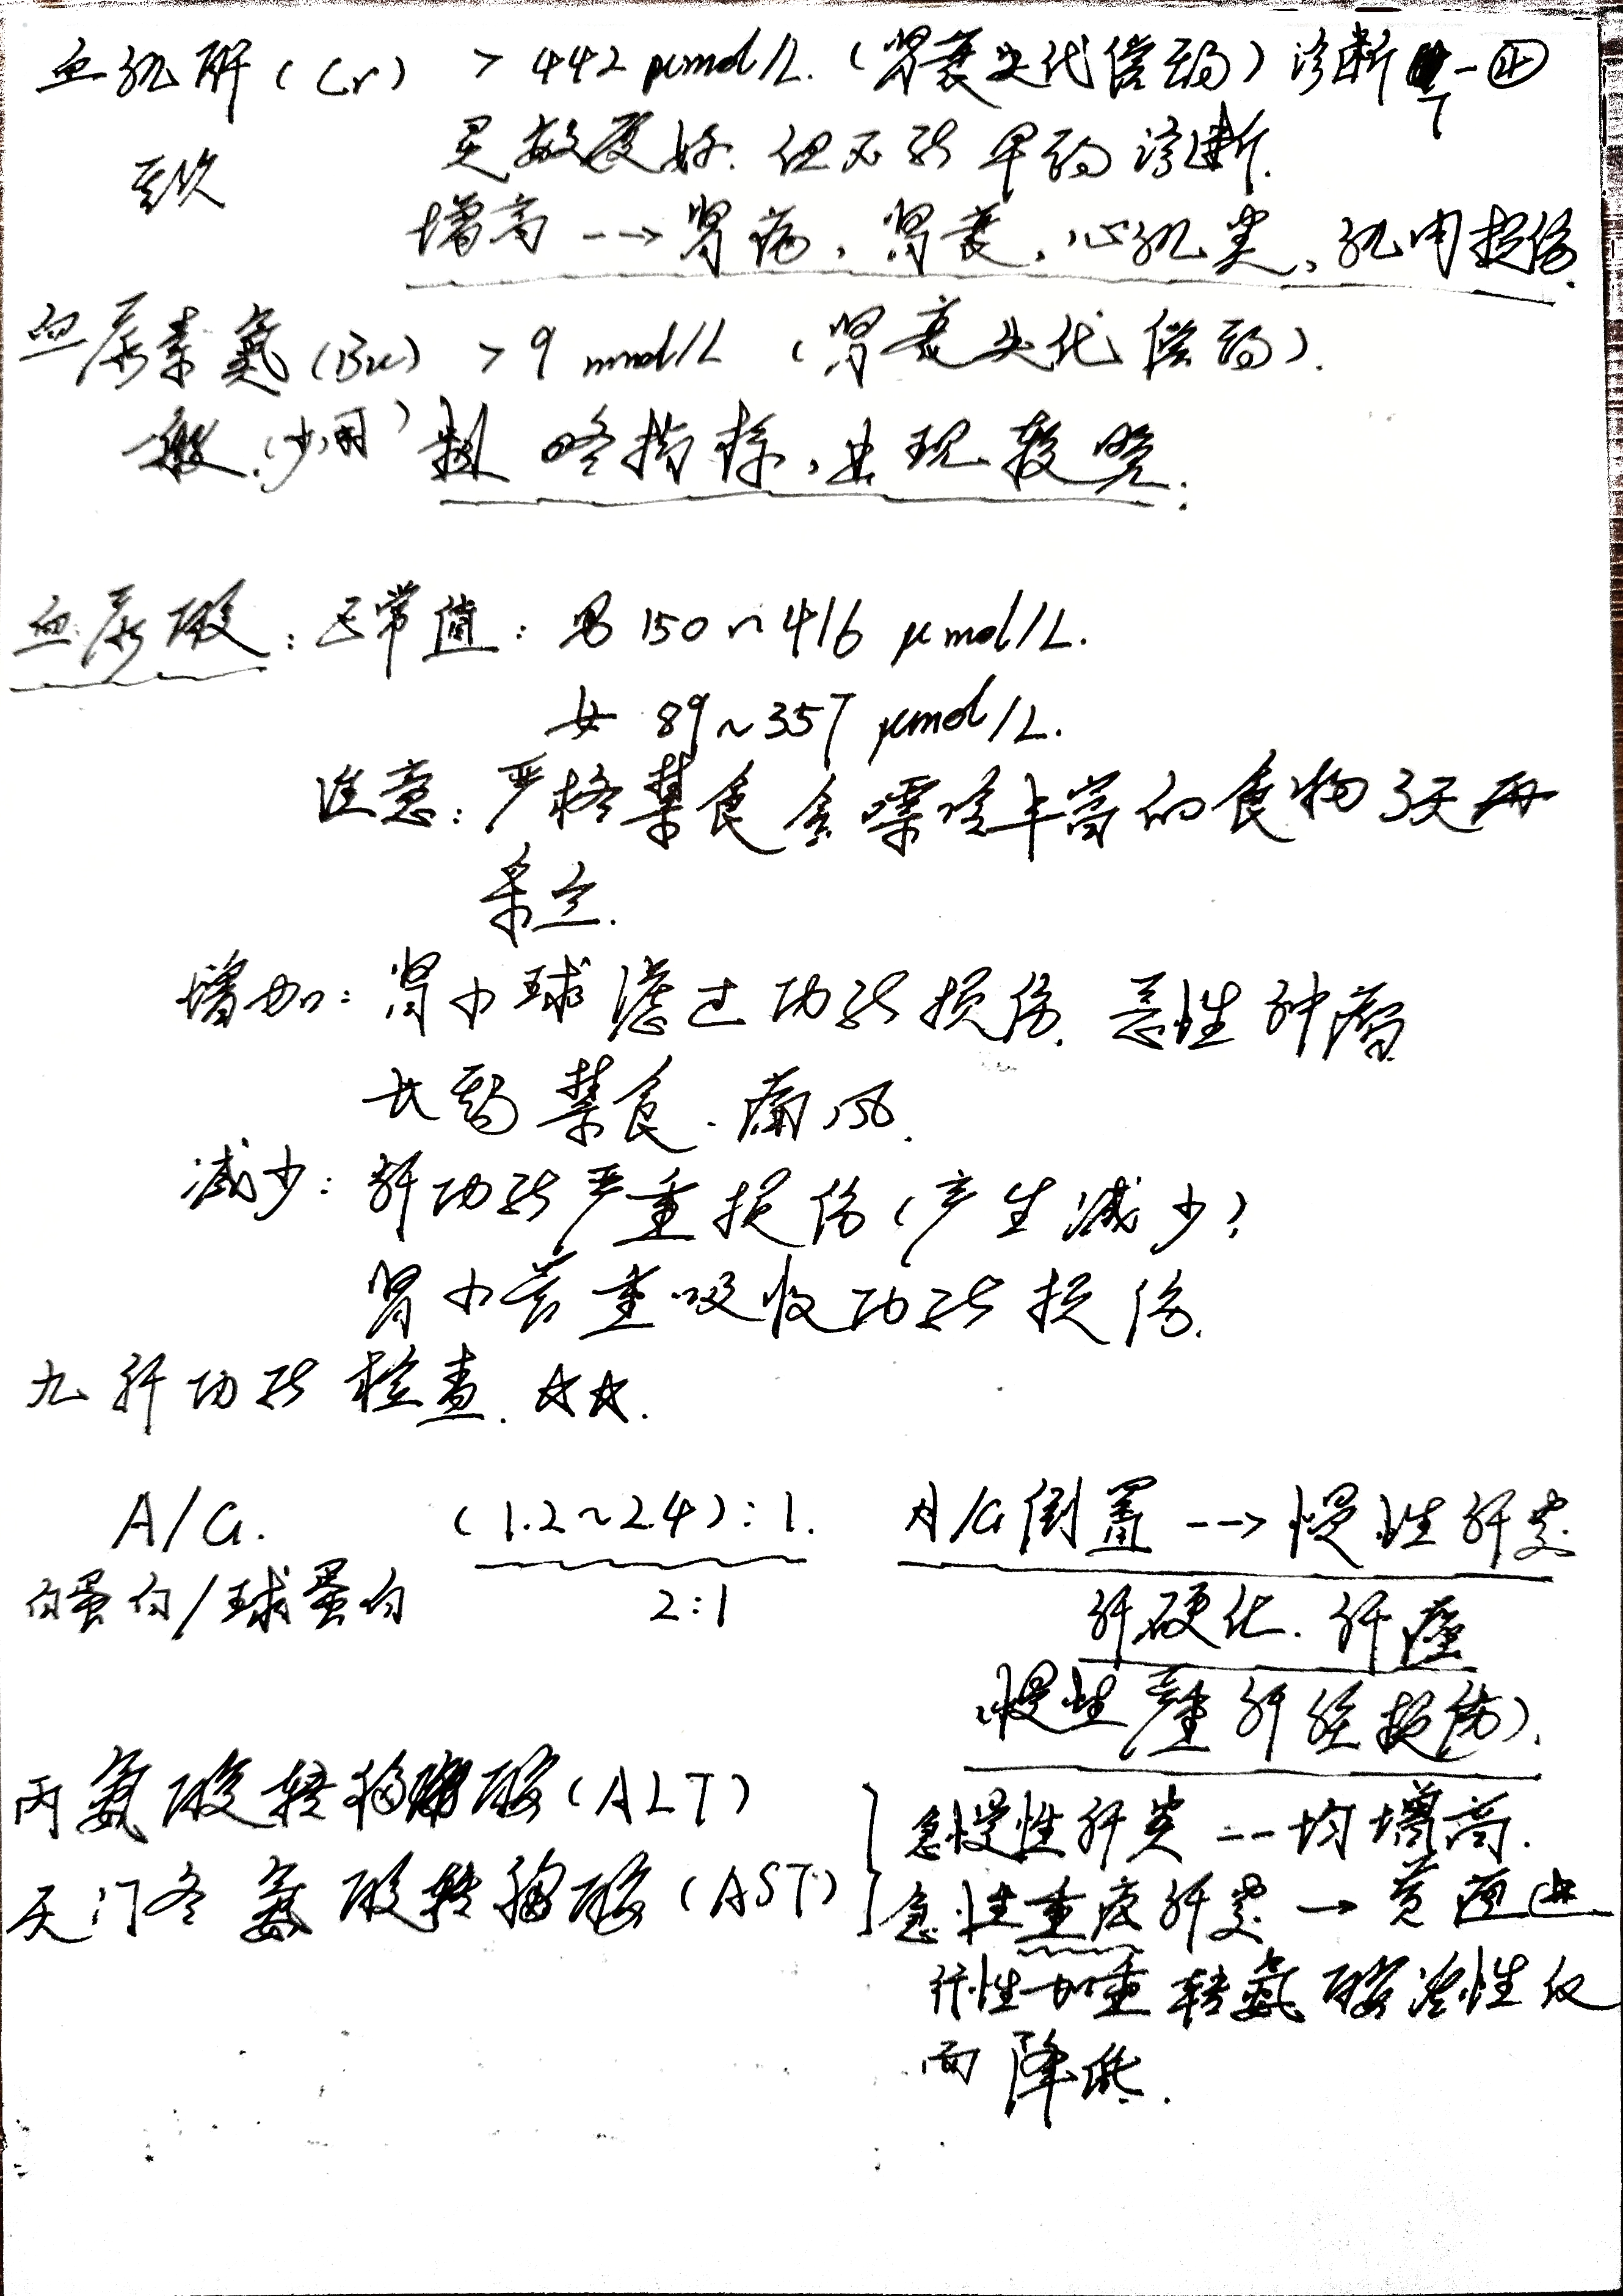 血肌酐(Cr) >442 μmol/L.(肾衰失代偿期)诊断
灵敏度好.但不能早期诊断.
增高-->肾病,肾衰,心肌炎,肌肉损伤.
血尿素氮(Bu) >9 mmol/L (肾衰失代偿期).
一般.(少用) 粗略指标,出现较晚.
血尿酸:正常值:男150~416 μmol/L.
女 89~357 μmol/L.
注意:严格禁食含嘌呤丰富的食物3天再
采血.
增加:肾小球滤过功能损伤.恶性肿瘤
长期禁食.痛风.
减少:肝功能严重损伤(产生减少)
肾小管重吸收功能损伤.
九 肝功能检查.☆☆.
A/G. (1.2~2.4):1. A/G倒置-->慢性肝炎
白蛋白/球蛋白 2:1 肝硬化.肝癌
(慢性严重肝脏损伤).
丙氨酸转移酶(ALT) 急慢性肝炎--均增高.
天门冬氨酸转移酶(AST) 急性重度肝炎→黄疸进
行性加重转氨酶活性反
而降低.